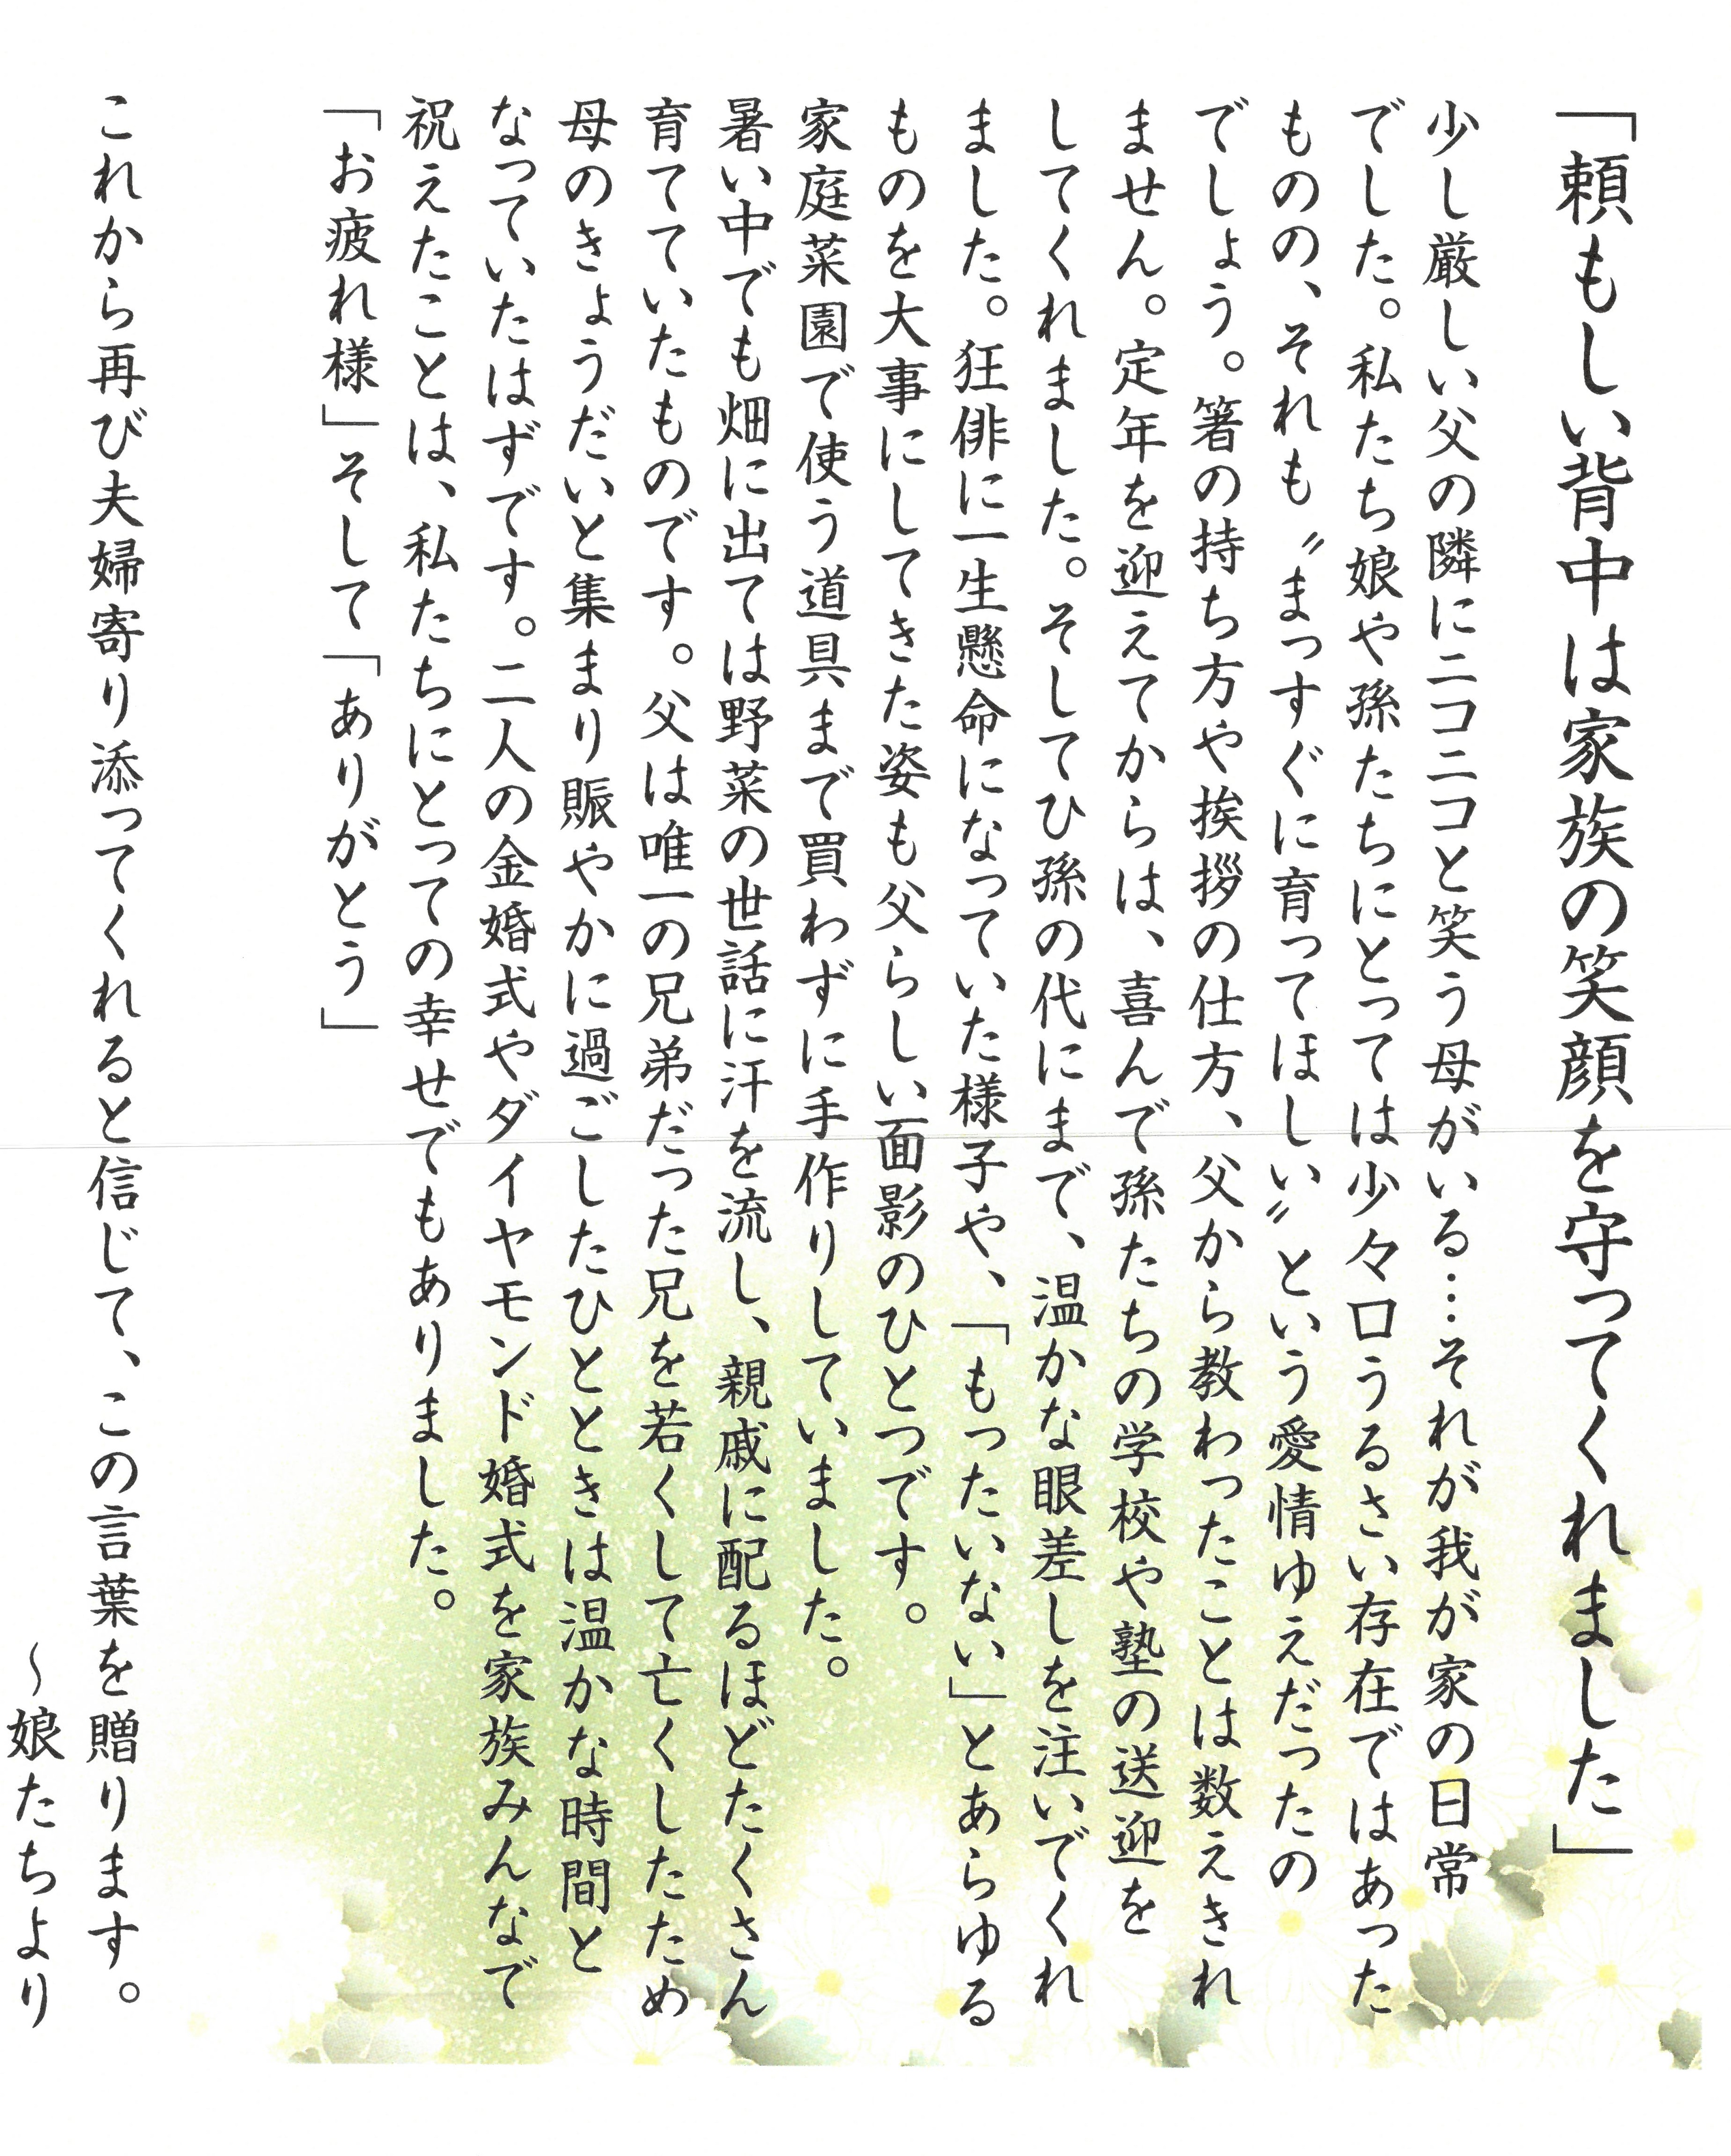 「頼もしい背中は家族の笑顔を守ってくれました」
少し厳しい父の隣にニコニコと笑う母がいる…それが我が家の日常
でした。私たち娘や孫たちにとっては少々口うるさい存在ではあった
ものの、それも〝まっすぐに育ってほしい〟という愛情ゆえだったの
でしょう。箸の持ち方や挨拶の仕方、父から教わったことは数えきれ
ません。定年を迎えてからは、喜んで孫たちの学校や塾の送迎を
してくれました。そしてひ孫の代にまで、温かな眼差しを注いでくれ
ました。狂俳に一生懸命になっていた様子や、「もったいない」とあらゆる
ものを大事にしてきた姿も父らしい面影のひとつです。
家庭菜園で使う道具まで買わずに手作りしていました。
暑い中でも畑に出ては野菜の世話に汗を流し、親戚に配るほどたくさん
育てていたものです。父は唯一の兄弟だった兄を若くして亡くしたため
母のきょうだいと集まり賑やかに過ごしたひとときは温かな時間と
なっていたはずです。二人の金婚式やダイヤモンド婚式を家族みんなで
祝えたことは、私たちにとっての幸せでもありました。
「お疲れ様」そして「ありがとう」
これから再び夫婦寄り添ってくれると信じて、この言葉を贈ります。
～娘たちより